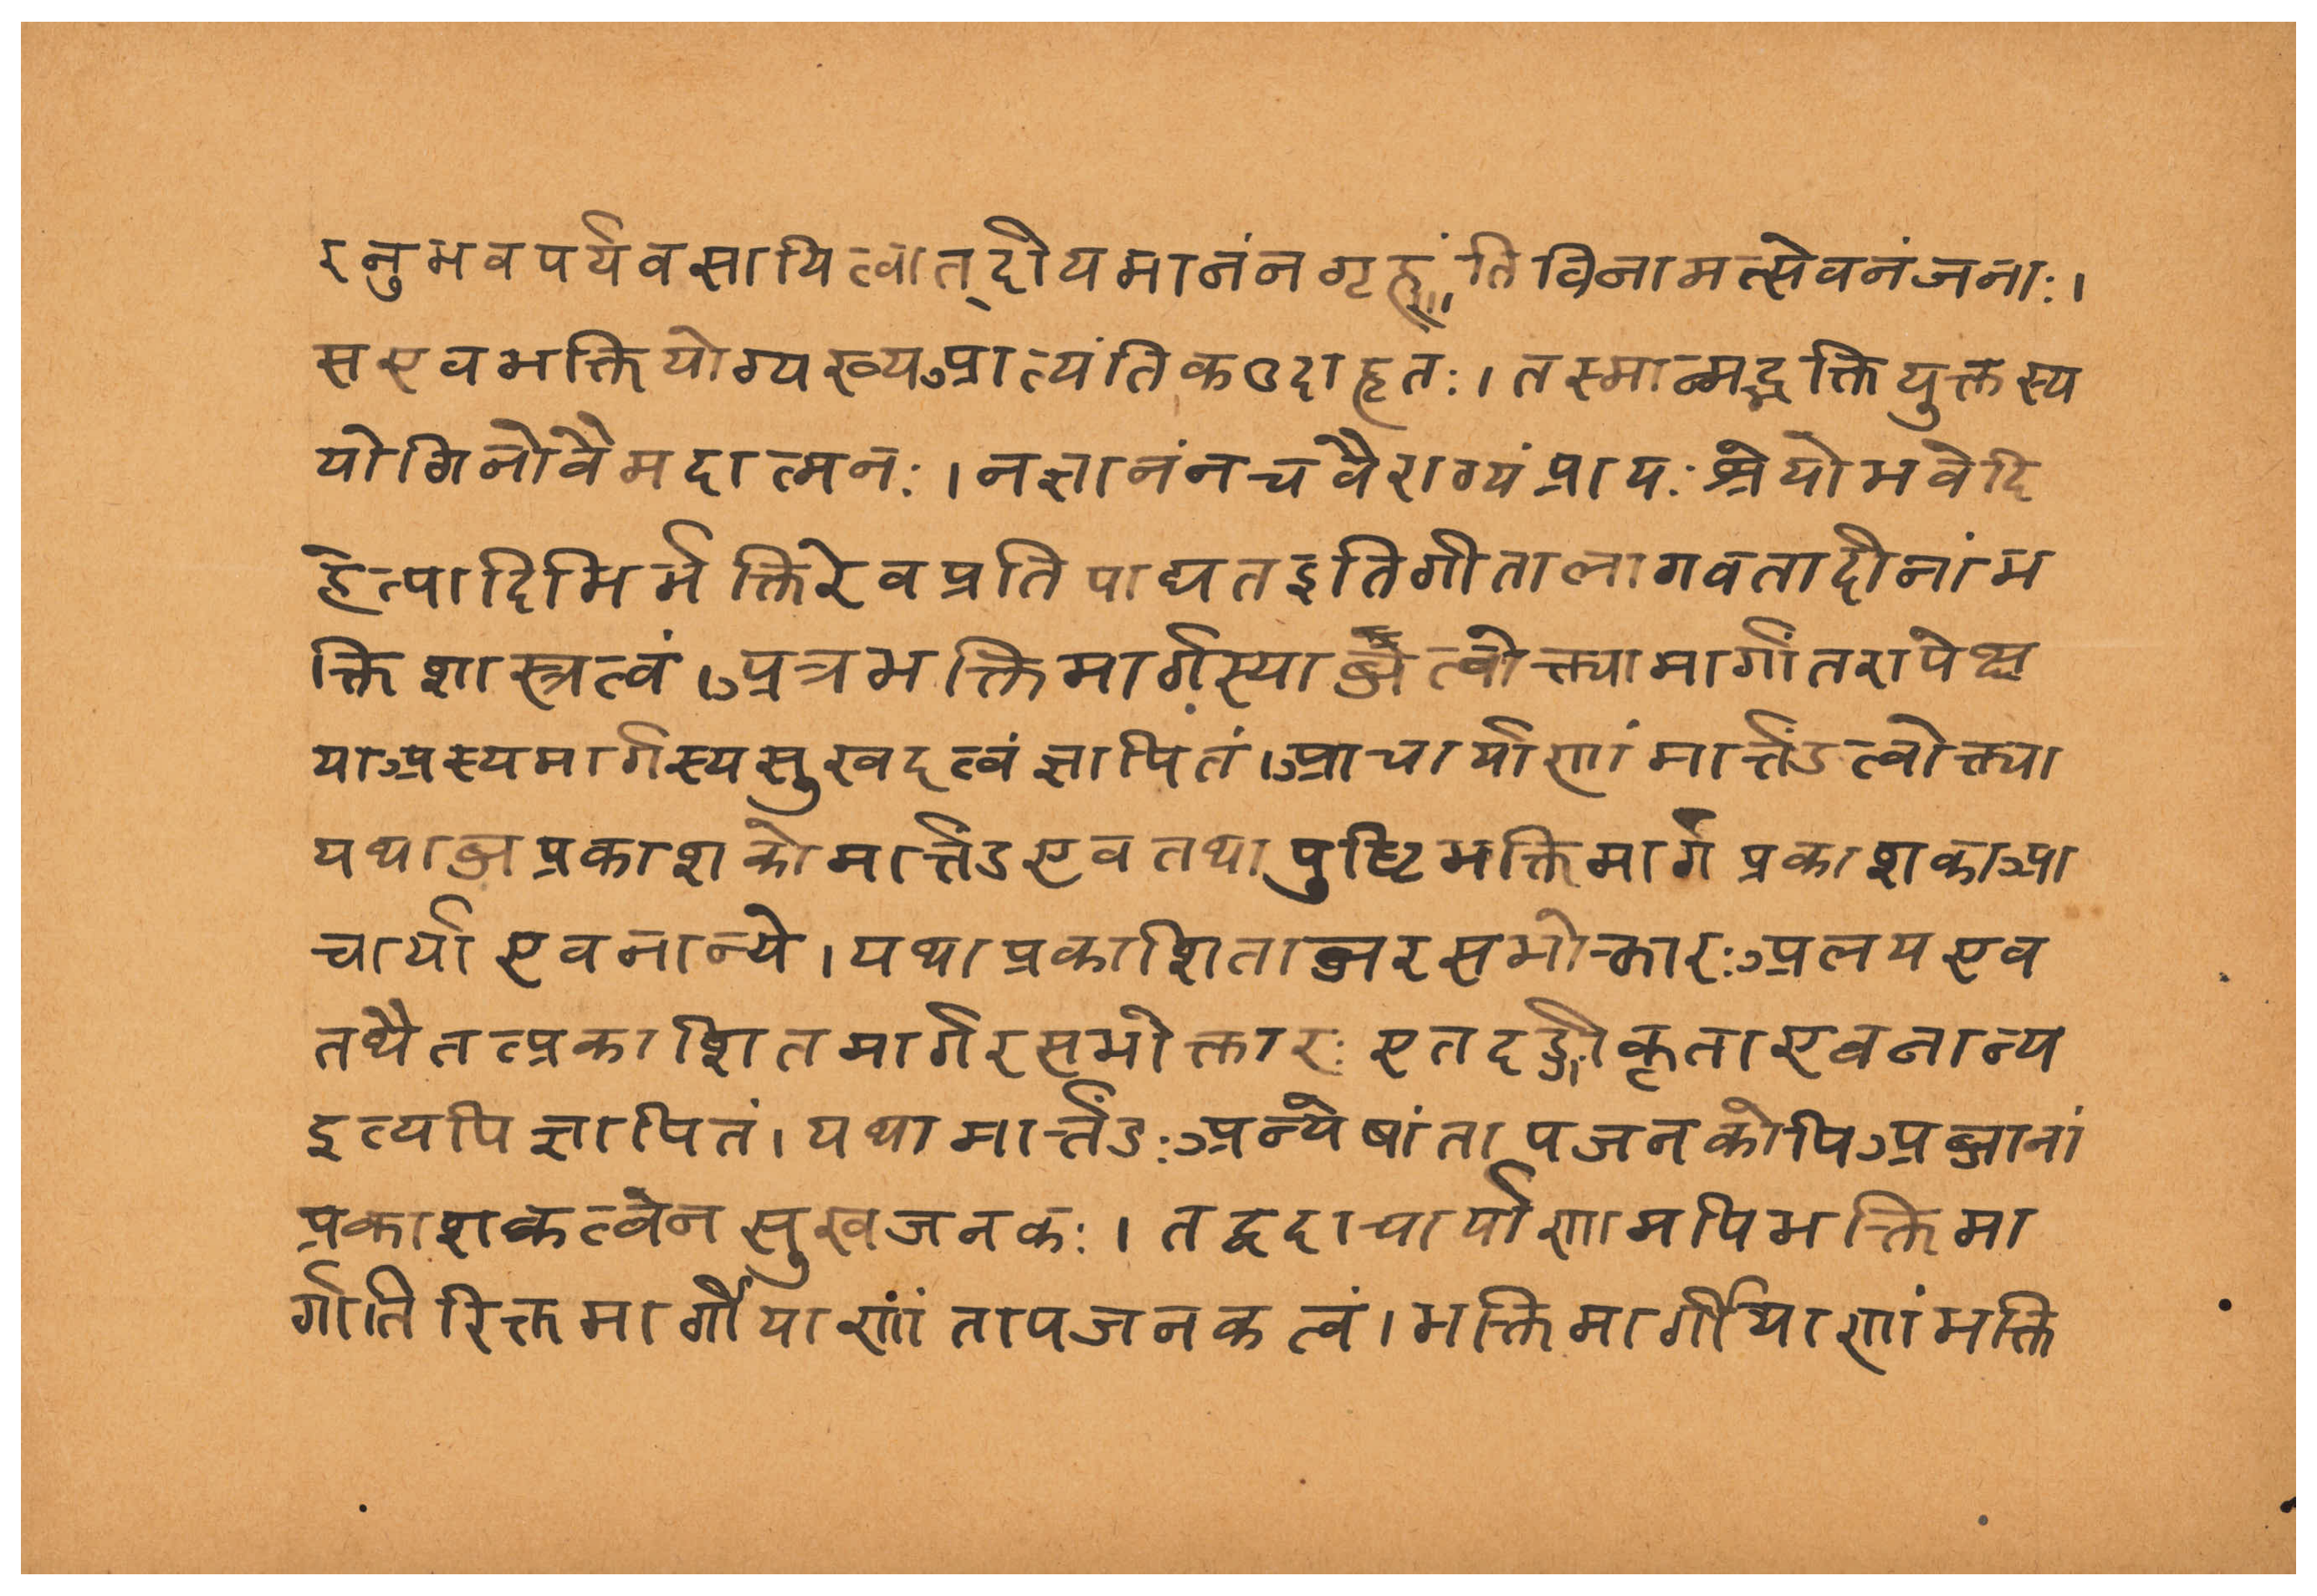 रनुभवपर्यवसायित्वात्दीयमानंनगृह्णंतिविनामत्सेवनंजनाः।
सएवभक्तियोग्यख्यआत्यंतिकउदाहृतः।तस्मान्मद्भक्तियुक्तस्य
योगिनोवैमदात्मनः।नज्ञानंनचवैराग्यंप्रायःश्रेयोभवेदि
हेत्यादिभिर्भक्तिरेवप्रतिपाद्यतइतिगीताभागवतादीनांभ
क्तिशास्त्रत्वं।अत्रभक्तिमार्गस्याब्जत्वोक्त्यामार्गांतरापेक्ष
याअस्यमार्गस्यसुखदत्वंज्ञापितं।आचार्याणांमार्त्तंडत्वोक्त्या
यथाब्जप्रकाशकोमार्त्तंडएवतथापुष्टिभक्तिमार्गप्रकाशकाआ
चार्याएवनान्ये।यथाप्रकाशिताब्जरसभोक्तारःअलयएव
तथैतत्प्रकाशितमार्गरसभोक्तारःएतदङ्गीकृताएवनान्य
इत्यपिज्ञापितं।यथामार्त्तंडःअन्येषांतापजनकोपिअब्जानां
प्रकाशकत्वेनसुखजनकः।तद्वदाचार्याणामपिभक्तिमा
र्गातिरिक्तमार्गीयाणांतापजनकत्वं।भक्तिमार्गीयाणांभक्ति